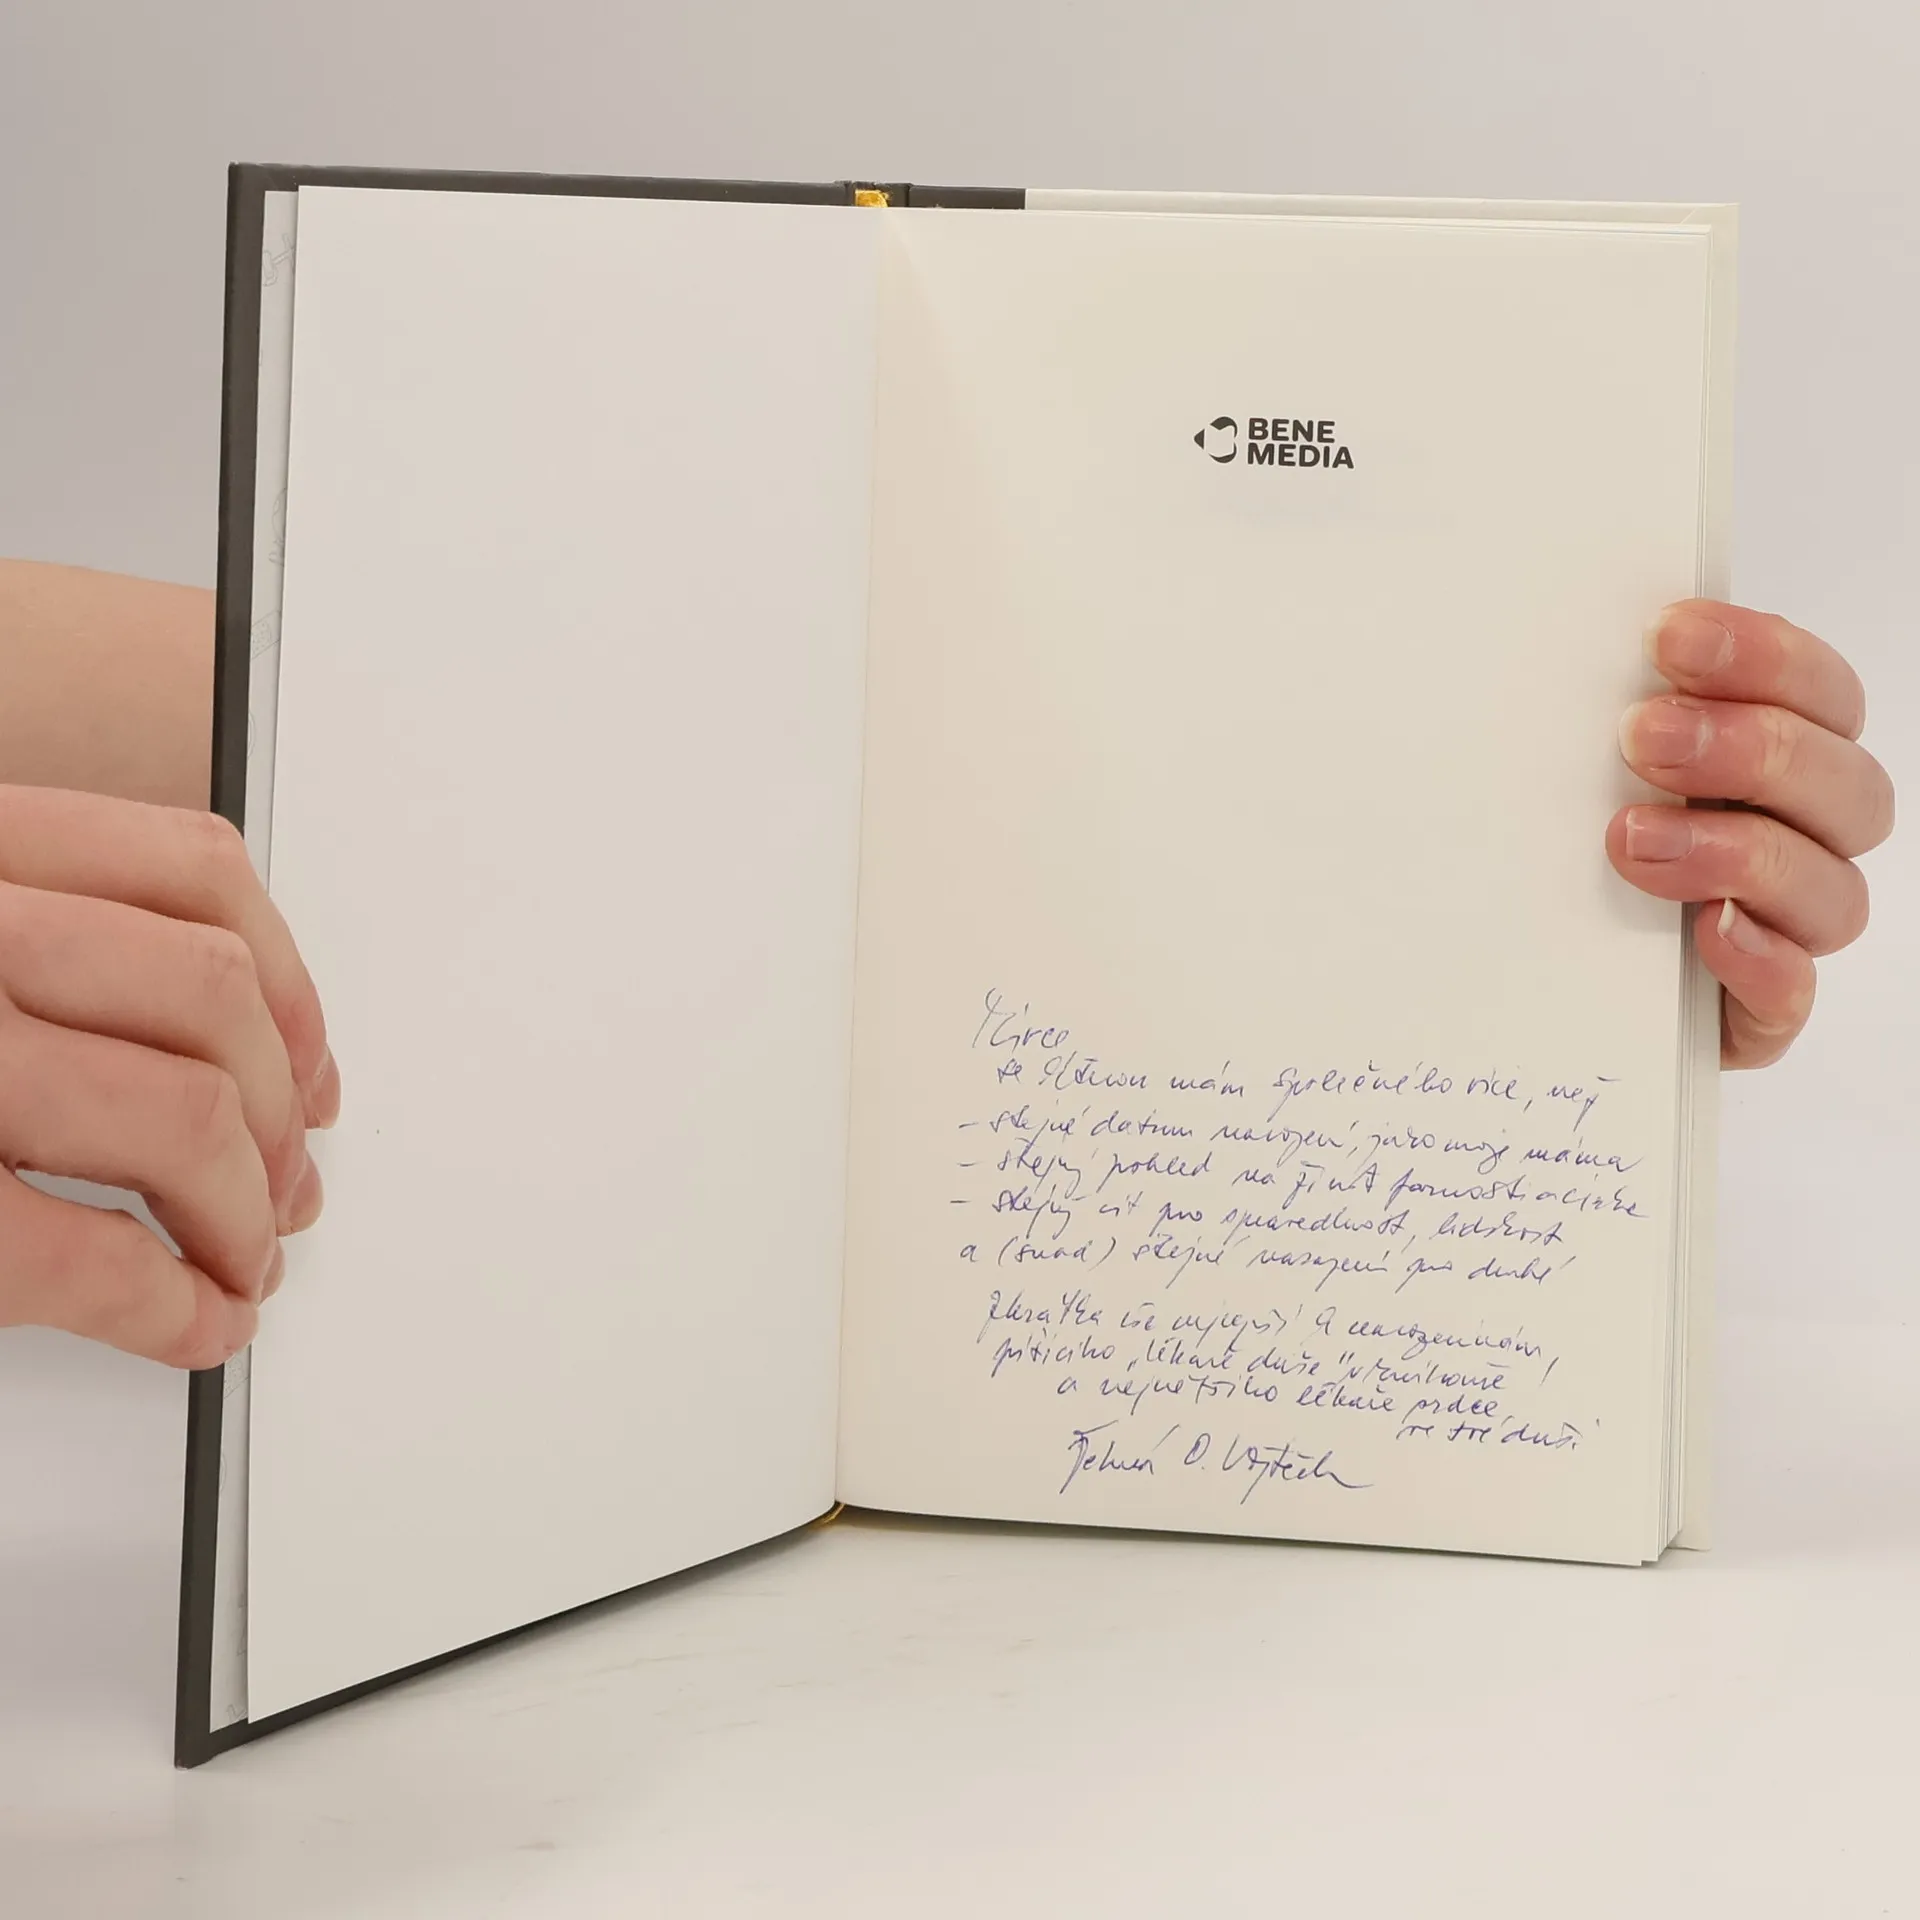 BENE
MEDIA
Mirce
se kterou mám společného více, než
- stejné datum narození, jako moje máma
- stejný pohled na život farnosti a církve
- stejný cit pro spravedlnost, lidskost
a (snad) stejné nasazení pro druhé
Zkrátka vše nejlepší k narozeninám,
píšícího „lékaře duše" v knihovně
a největšího lékaře srdce,
ve tvé duši
O. Vojtěch